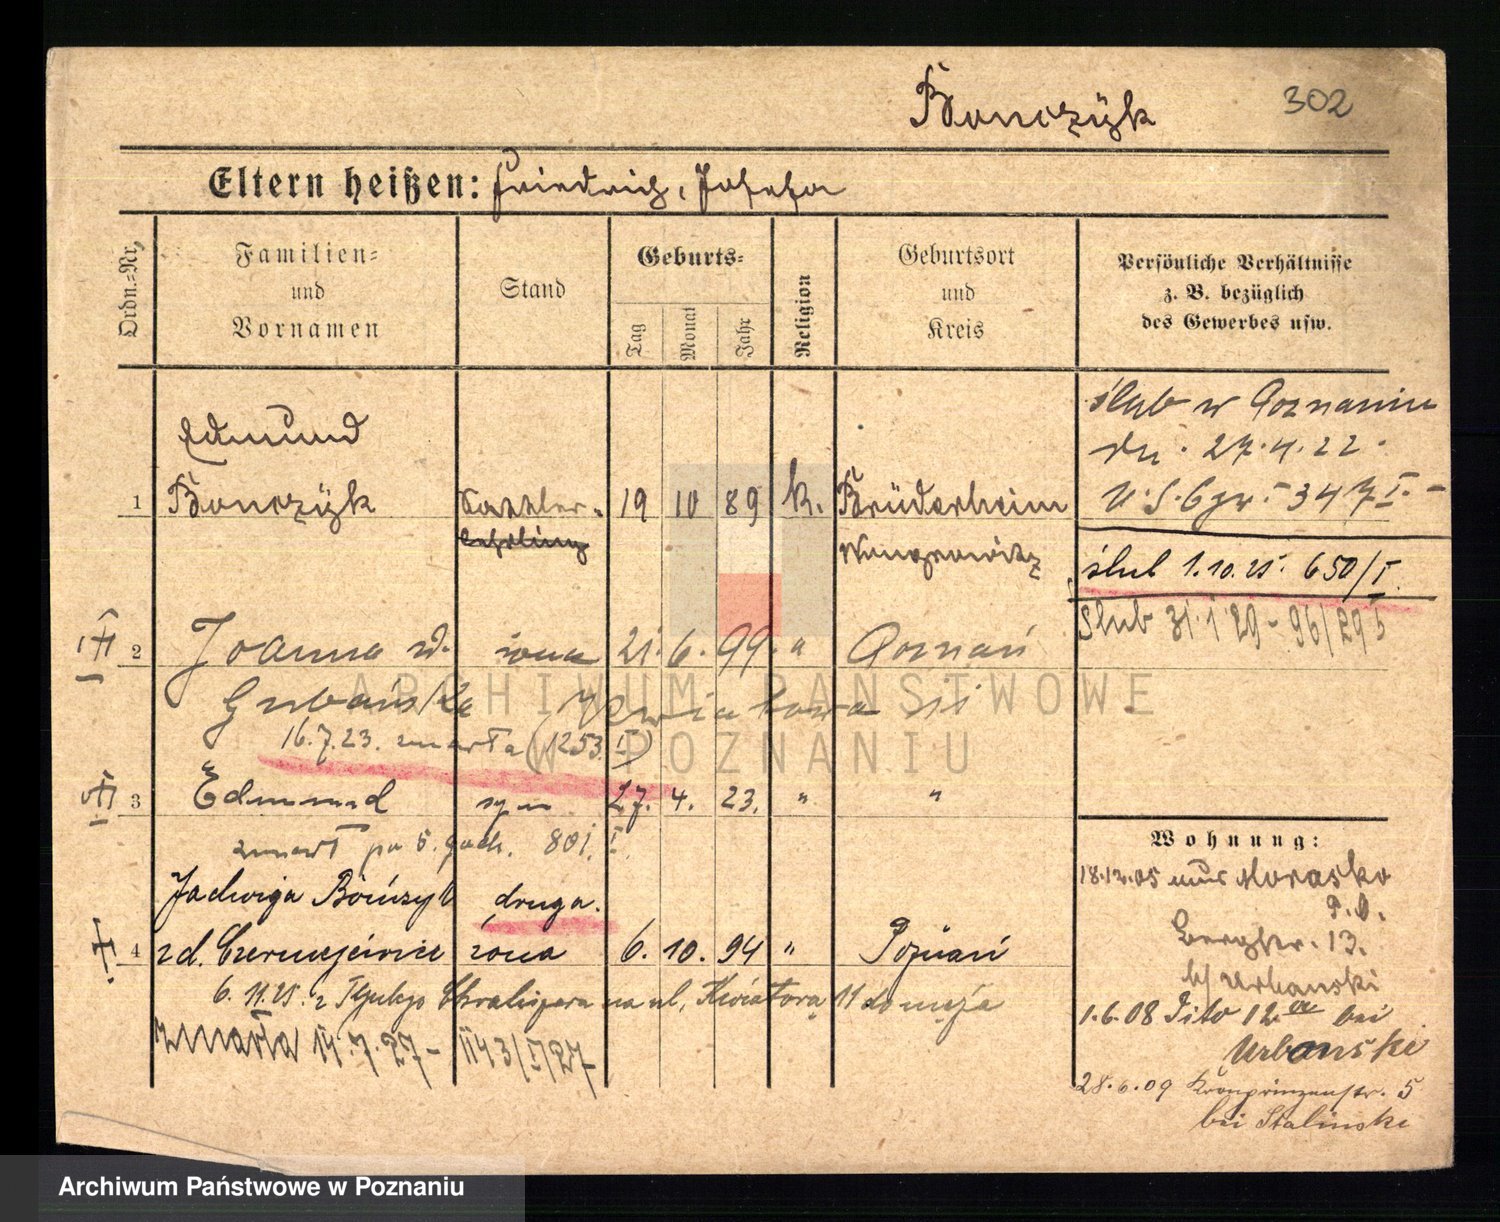 302
Bonczyk
Eltern heißen: Friedrich, Josefa
Ordn.-Nr.
Familien-
und
Vornamen
Stand
Geburts-
Tag
Monat
Jahr
Religion
Geburtsort
und
Kreis
Persönliche Verhältnisse
z. B. bezüglich
des Gewerbes usw.
Edmund
1 Bonczyk Sattler- 19 10 89 k. Brüderheim
lehrling Wongrowitz
ślub w Poznaniu
dn. 27.4.22.
347 I.
ślub 1.10.25. 650/I.
Ślub 31.1 29 - 96/29 I
2 Joanna z d. żona 21. 6. 99. " Poznań
Grubańska
16.7.23. zmarła (1253. I)
3 Edmund syn 27. 4. 23. " "
zmarł po 5. godz. 801. I.
Jadwiga Bończyk druga
4 z d. żona 6. 10. 94 " Poznań
6. 11. 25. z na ul.
zmarła 14.7.27 - 1143/I/27
Wohnung:
18.12.05 aus Morasko
P.O.
Bergstr. 13.
b/ Urbanski
1.6.08 Dito 12 bei
Urbanski
28.6.09 Kronprinzenstr. 5
bei Stalinski
ARCHIWUM PAŃSTWOWE
W POZNANIU
Archiwum Państwowe w Poznaniu